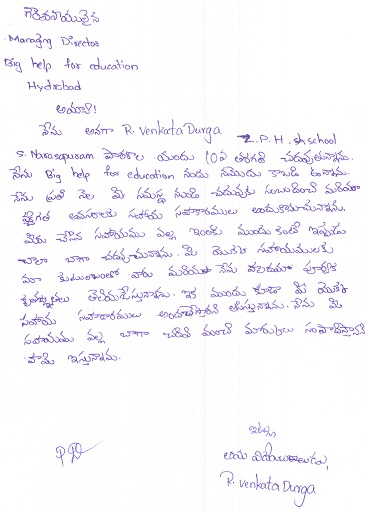 గౌరవనీయులైన
Managing Director
Big help for education
Hydrobad
అయ్యా!
నేను అనగా R. Venkata Durga Z.P.H. sh school
S. Narasapuram పాఠశాల యందు 10వ తరగతి చదువుతున్నాను.
నేను Big help for education నందు నమోదు కాబడి ఉన్నాను.
నేను ప్రతి నెల మీ సంస్థ నుండి చదువుకు సంబంధించి మరియు
వ్యక్తిగత అవసరాలకు సహాయ సహకారములు అందుకొనుచున్నాను.
మీరు చేసిన సహాయము వల్ల ఇంతకు ముందు కంటే ఇప్పుడు
చాలా బాగా చదువుచున్నాను. మీ యొక్క సహాయములకు
మా కుటుంబంలో వారు మరియు నేను హృదయ పూర్వక
కృతజ్ఞతలు తెలియజేస్తున్నాను. ఇక ముందు కూడా మీ యొక్క
సహాయ సహకారములు అందజేస్తారని ఆశిస్తున్నాను. నేను మీ
సహాయము వల్ల బాగా చదివి మంచి మార్కులు సంపాదిస్తానని
హామి ఇస్తున్నాను.
ఇట్లు
తమ విధేయురాలు,
R. Venkata Durga